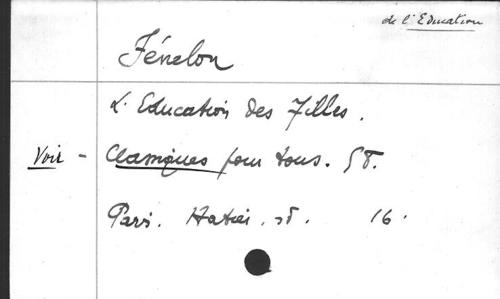 de l'Education
Fénelon
L'Education des Filles.
Voir - Classiques pour tous. 58.
Paris. Hatier. sd. 16.